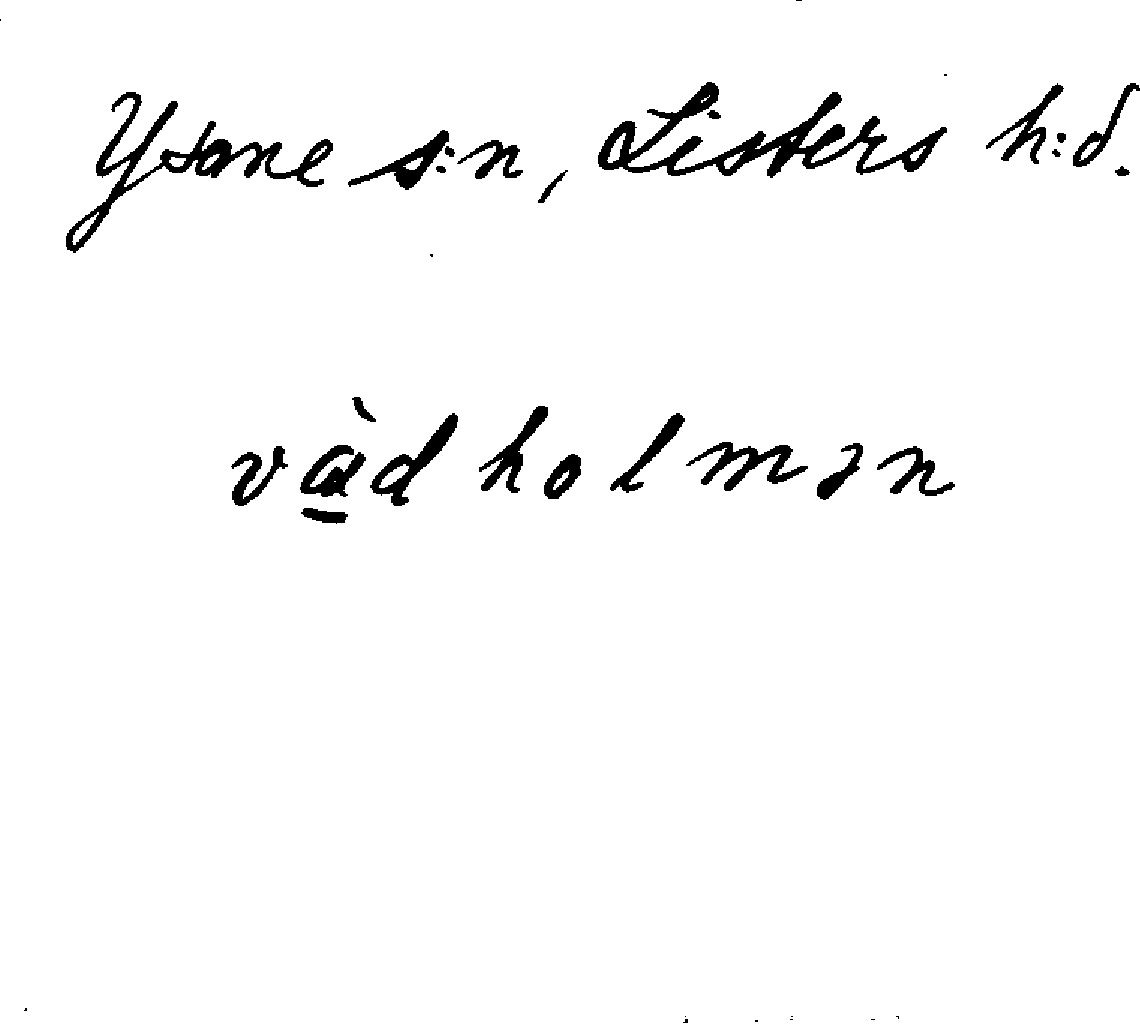 Ysane s:n, Listers h:d.
vɑ̱̀d holmən